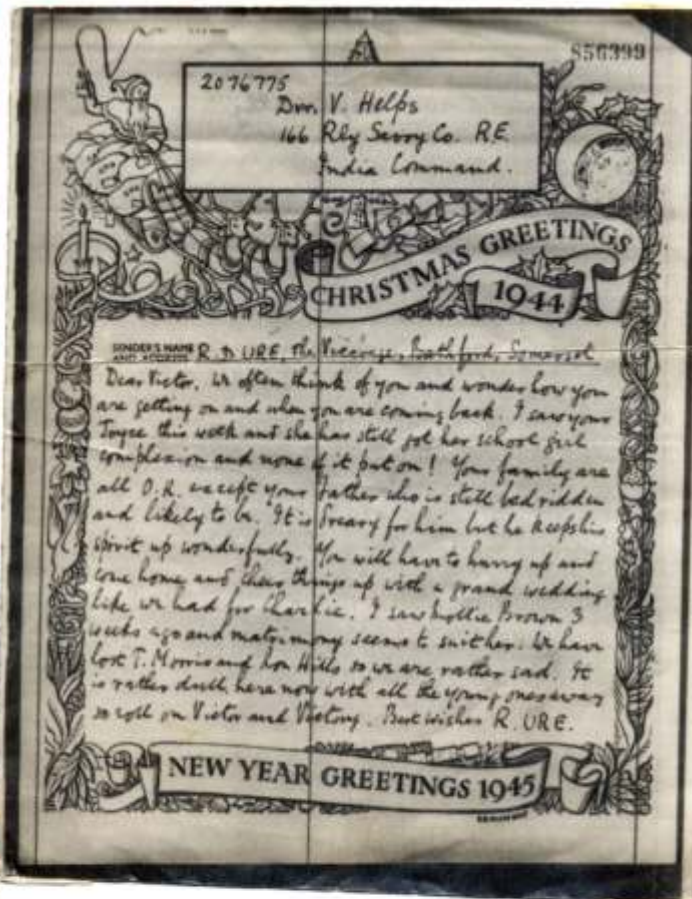 856399
2076775
Dvr. V. Helps
166 Rly Savoy Co. R.E.
India Command.
CHRISTMAS GREETINGS
1944
SENDER'S NAME AND ADDRESS R. D URE, The Vicarage, Bathford, Somerset
Dear Victor. We often think of you and wonder how you
are getting on and when you are coming back. I saw your
Joyce this week and she has still got her school girl
complexion and none of it put on! Your family are
all O.K. except your Father who is still bed ridden
and likely to be. It is dreary for him but he keeps his
spirit up wonderfully. You will have to hurry up and
come home and cheer things up with a grand wedding
like we had for Charlie. I saw Mollie Brown 3
weeks ago and matrimony seems to suit her. We have
lost T. Morris and Lon Hills so we are rather sad. It
is rather dull here now with all the young ones away
so roll on Victor and Victory. Best wishes R. URE.
NEW YEAR GREETINGS 1945